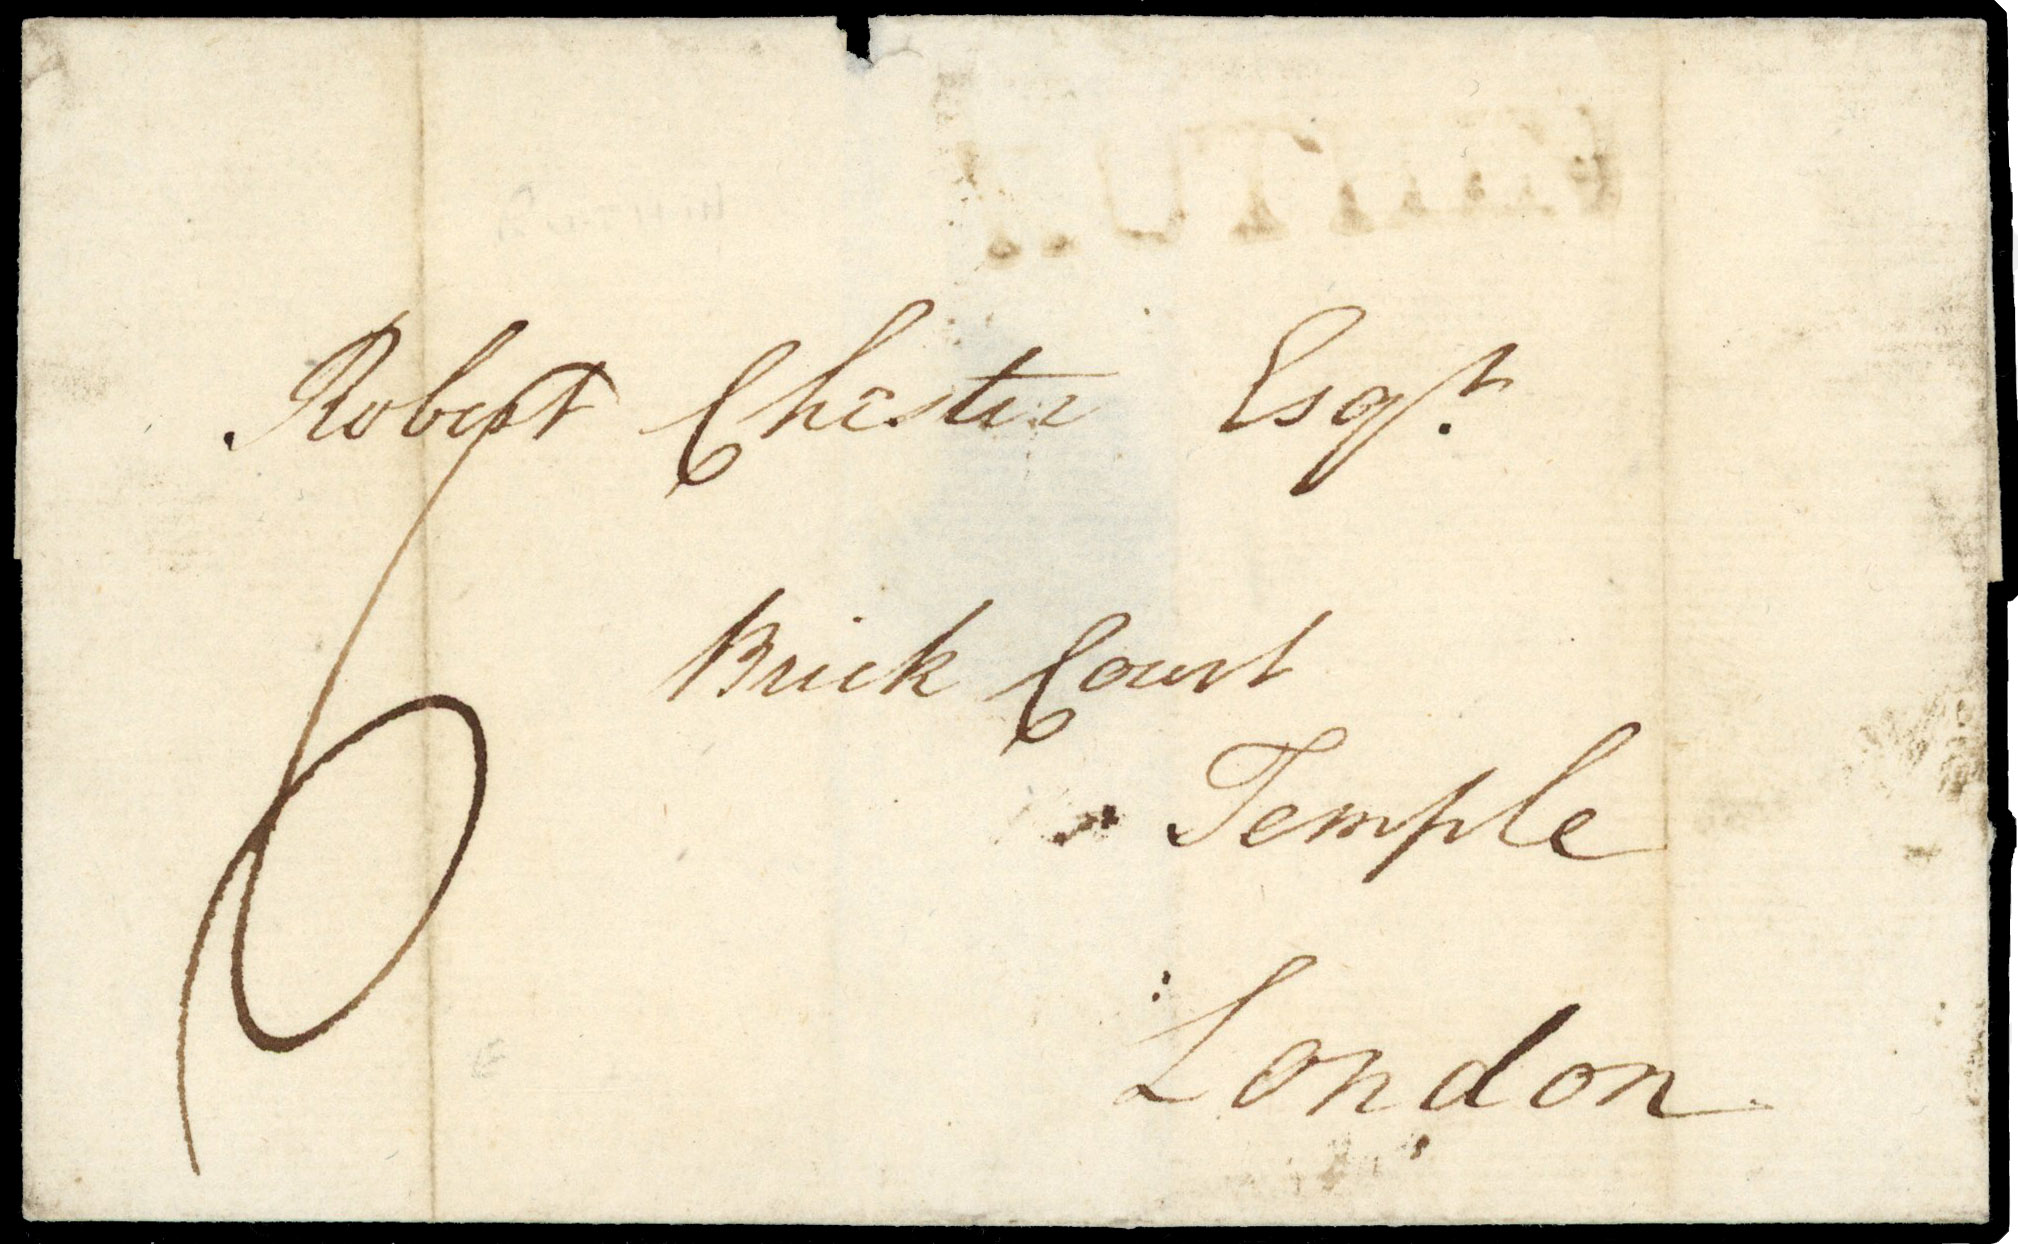 Robert Chester Esqr.
Brick Court
Temple
London
6